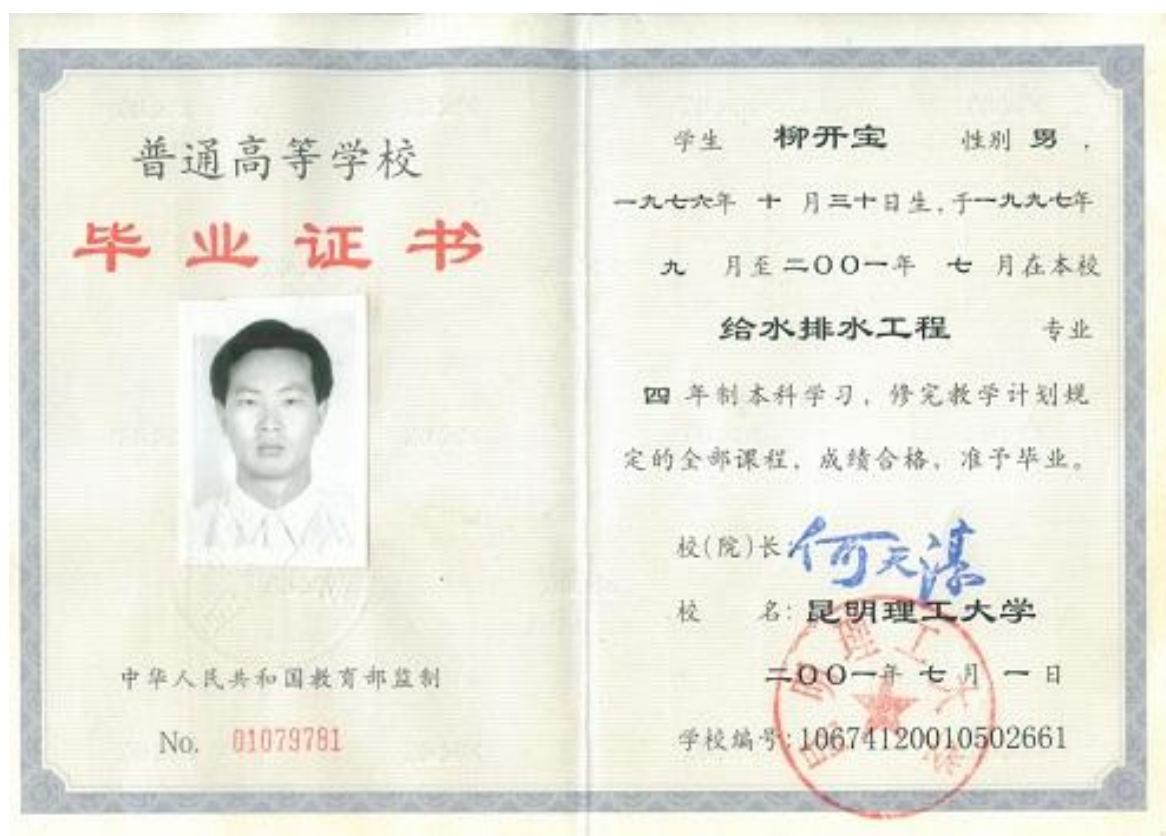 普通高等学校
毕业证书
中华人民共和国教育部监制
No. 01079781
学生 柳开宝 性别 男，
一九七六年 十 月三十日生，于一九九七年
九 月至二〇〇一年 七 月在本校
给水排水工程 专业
四 年制本科学习，修完教学计划规
定的全部课程，成绩合格，准予毕业。
校(院)长 何天淇
校 名：昆明理工大学
二〇〇一年 七 月 一 日
学校编号：10674120010502661
昆明理工大学